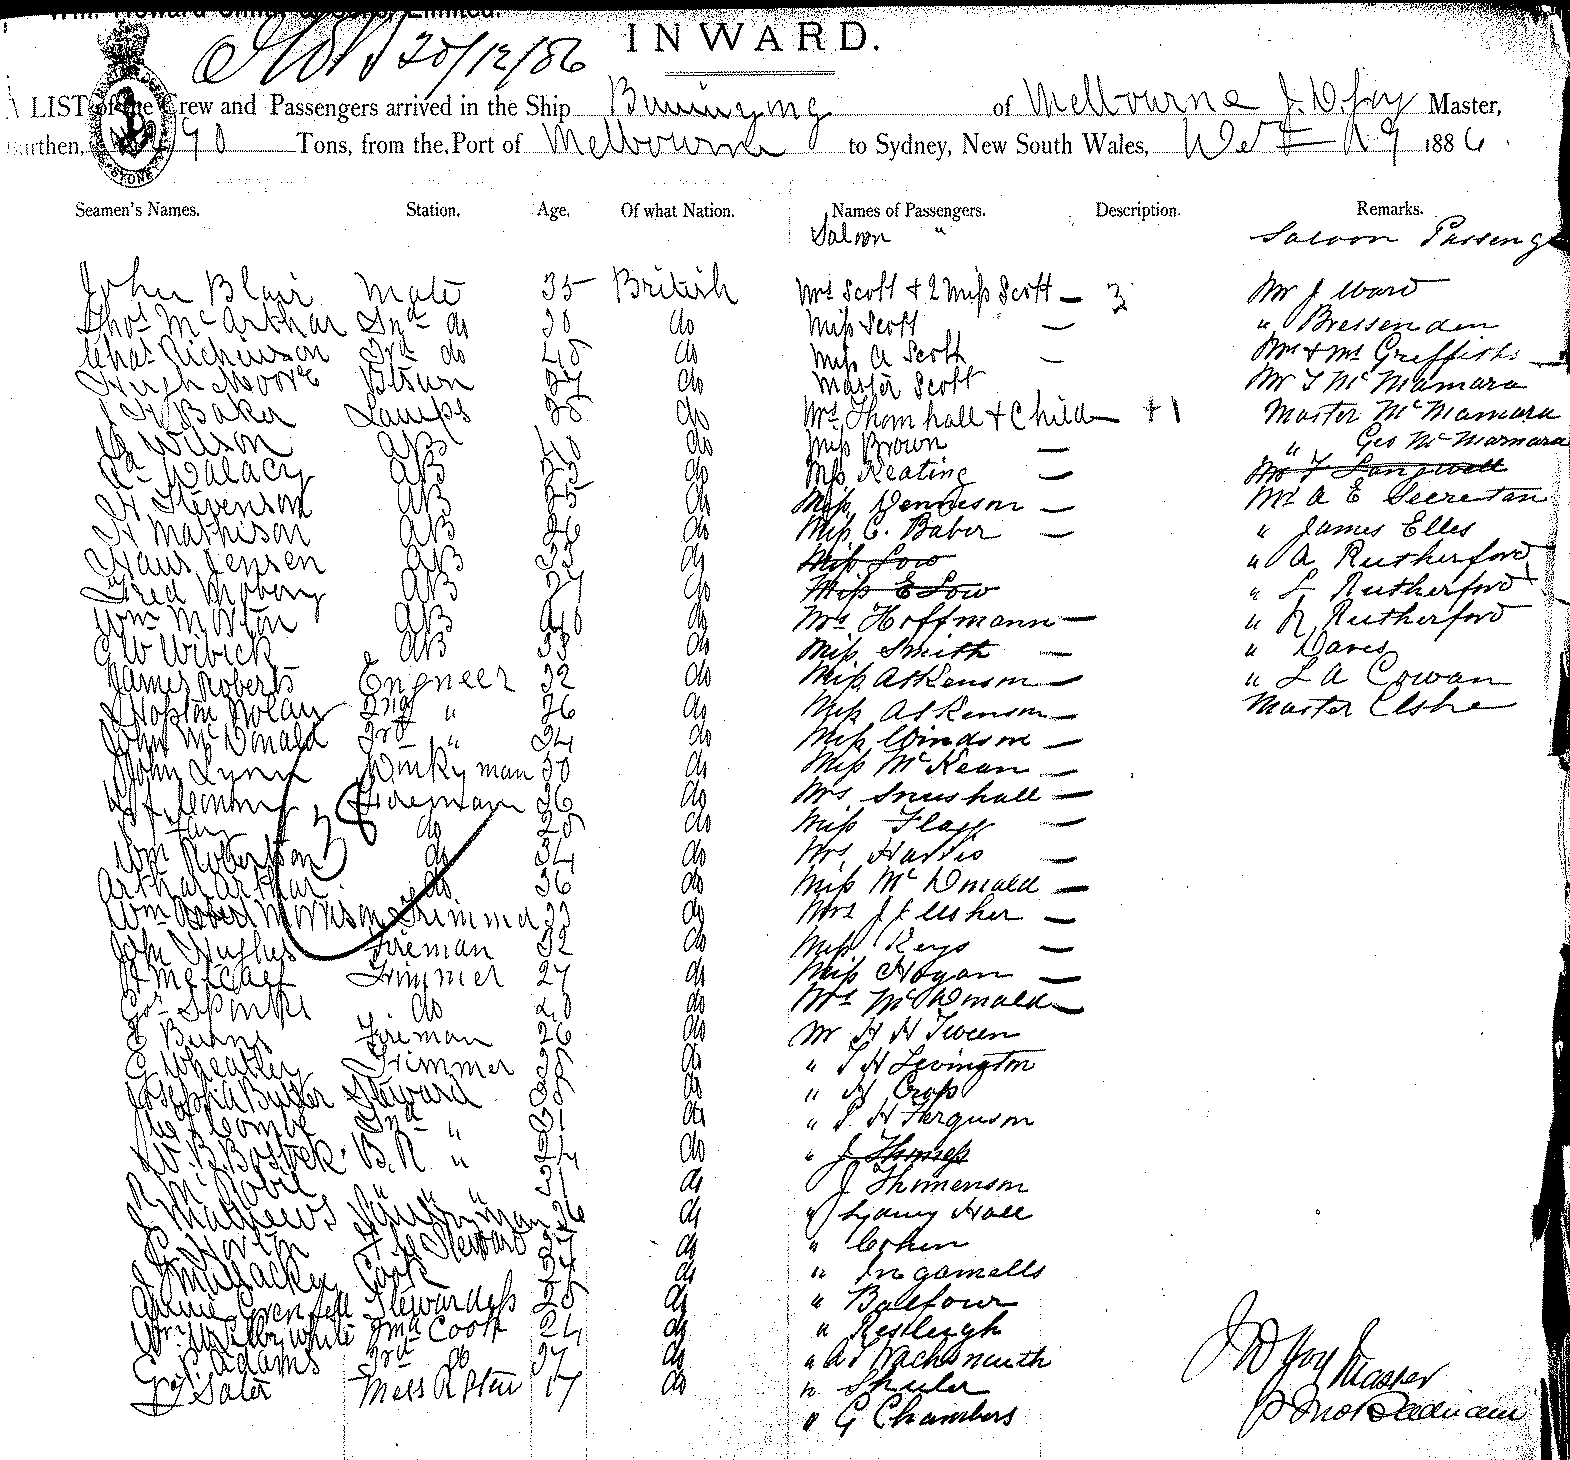 20/12/86 INWARD.
LIST of the Crew and Passengers arrived in the Ship Buninyong of Melbourne J. W. Joy Master,
Burthen, 90 Tons, from the Port of Melbourne to Sydney, New South Wales, 1886.
Seamen's Names. Station. Age. Of what Nation. Names of Passengers. Description. Remarks.
Saloon " Saloon Passeng
John Blair Mate 35 British Mrs Scott & 2 Miss Scott — 3 Mr J Ward
Thos McArthur 2nd do 30 do Miss Scott — " Bressenden
Chas 3rd do do Miss A Scott — Mr & Mrs Griffiths —
Hugh Moore Btswn 37 do Master Scott Mr T McMamara
Baker Lamps 28 do Mrs Thornhall & Child — +1 Master McMamara
Wilson AB 40 do Miss Brown — " Geo McMamara
Walacy AB do Miss Keating — Mr T Langwell
Stevenson AB 25 do Miss Dennison — Mr A E Secretan
Mathison AB 26 do Miss C. Baber — " James Elles
Hans Jensen AB 33 do Miss Low " A Rutherford
Fred Moberg AB 27 do Miss E Low " L Rutherford
Wm Morton AB 40 do Mrs Hoffmann — " R Rutherford
AB 33 do Miss Smith — " Davis
James Roberts Engneer 32 do Miss Atkenson — " L A Cowan
Nolan 2nd " 26 do Miss Atkenson — Master Elshe
John McDonald 3rd " 34 do Miss Windsor —
John Lynn Dinkyman 30 do Miss McKean —
Fireman 36 do Mrs Snushall —
do do Miss Flagg —
Wm Robertson do 34 do Mrs Harris —
Arthur Arthur do 36 do Miss McDonald —
Wm Robert Morrison Trimmer 33 do Mrs J F Usher —
John Hughes Fireman 32 do Miss Keys —
Metcalf Trimmer 27 do Miss Hogan —
Geo Sparks do do Mrs McDonald —
E Burns Fireman 26 do Mr H H Tween
G Wheatley Trimmer 38 do " T H Levington
Joseph Butler Steward 38 do " H Cross
2nd " 31 do " P H Ferguson
W. B. Bostock B.R " 24 do " J
31 do J Thomenson
J Mathews Pantryman 26 do " Sydney Hall
Horton Steward do " Cohen
Cook 37 do " Ingamells
Annie Grenfell Stewardess 28 do " Balfour
2nd Cook 24 do " Restleigh
Adams 3rd do 37 do " A J Wachsmuth
Slater Mess R Stew 17 do " Shuler
" G Chambers
J W Joy Master